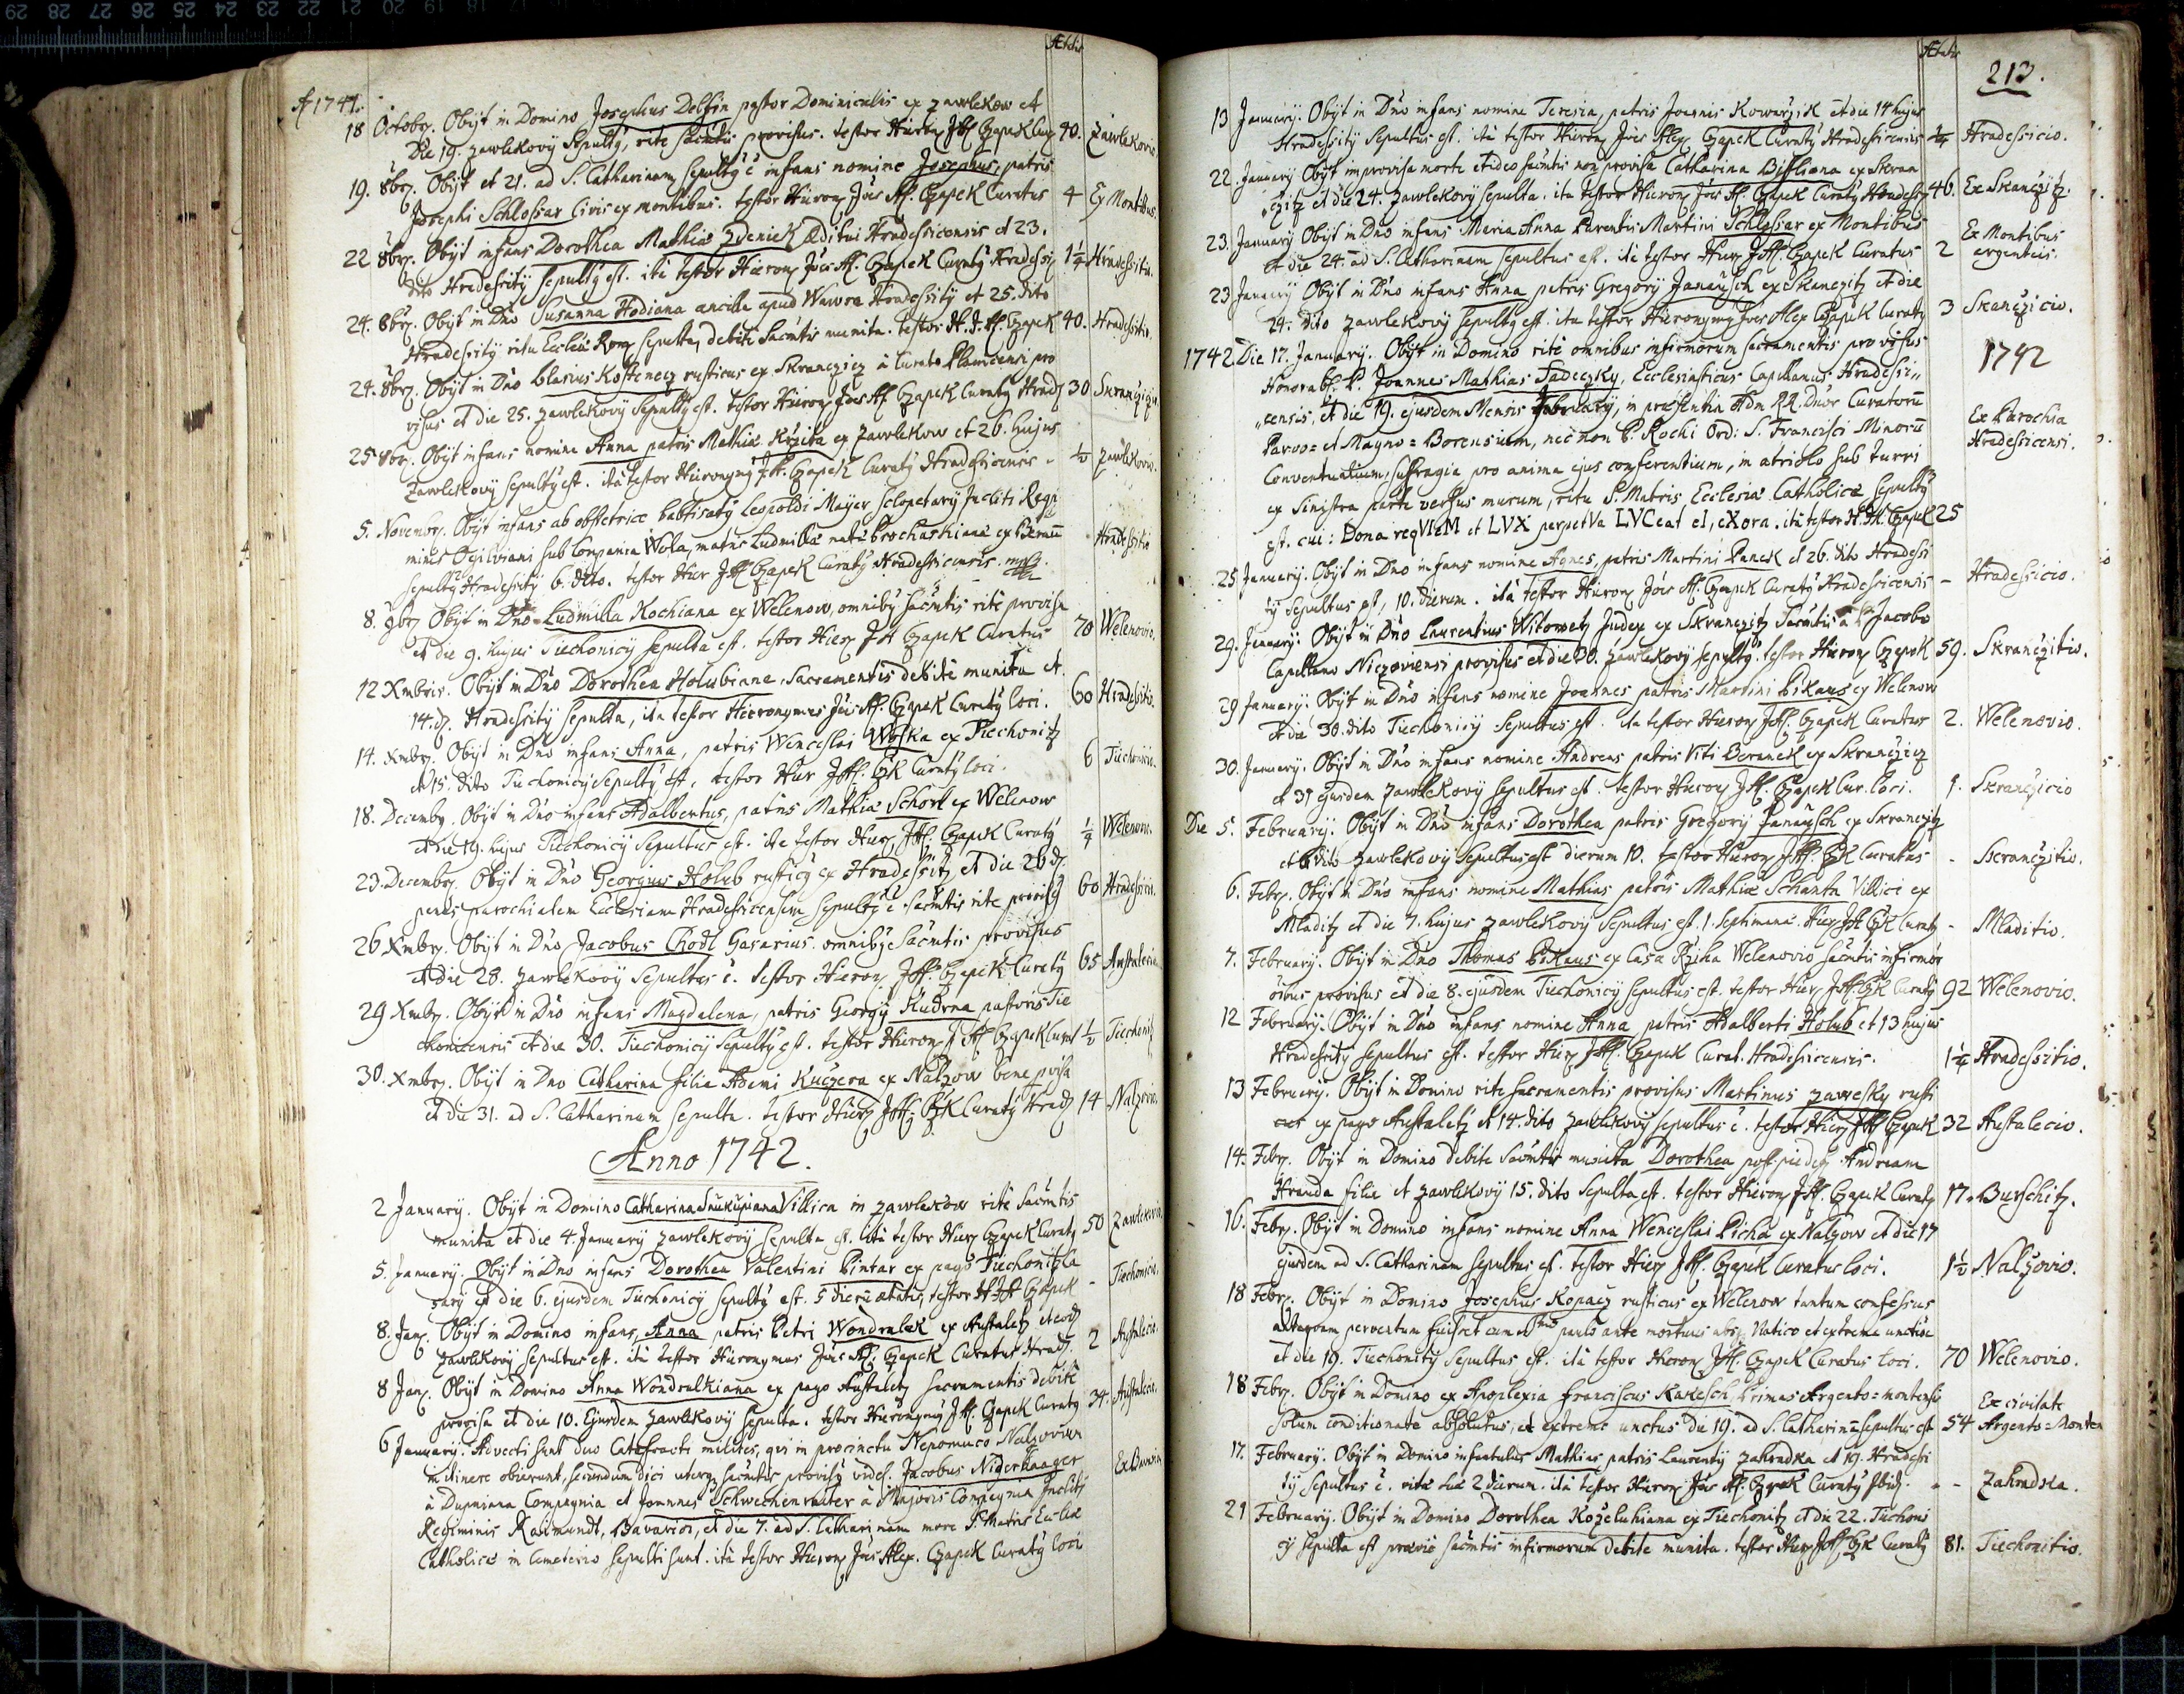 A 1741.
Ætatis
18 Octobr. Obijt in Domino Josephus Delfin pastor Dominicalis ex Zawlekow et
Die 19. Zawlekovij Sepultus, rite Sacrâtis provisus. testor Hieron Czapek 40. Zawlekovio
19. 8br. Obijt et 21. ad S. Catharinam sepultus ē infans nomine Josephus, patris
Josephi Schlossar Civis ex montibus. testor Hieron Joës Al. Czapek Curatus 4 Ex Montibus
22 8br. Obijt infans Dorothea Mathiæ Zdeniek Æditui Hradessicensis et 23.
dito Hradessitij sepultus est. ità testor Hieron Joës Al. Czapek Curatus 1¼ Hradessitio
24. 8br. Obijt in Dño Susanna Hodiana ancilla apud Wawra Hradessitij et 25. dito
Hradessitij ritu Ecclesiæ Rom sepulta, debite Sacrîtis munita. testor H. J. A. Czapek 40. Hradessitio.
24. 8br. Obijt in Dño Blasius Kostenecz rusticus ex Skranczicz à Curato Planicensi pro
visus et die 25. Zawlekovij sepultus est. testor Hieron Joës Al Czapek Curatus 30
25 8br. Obijt infans nomine Anna patris Mathiæ Krzicka ex Zawlekow et 26. hujus
Zawlekovij sepultus est. ità testor Hieronymus J.A. Czapek Curatus Hradessicensis. ½ Zawlekovio.
5. Novembr. Obijt infans ab obstetrice babtisatus Leopoldi Mayer, sclopetarij Incliti Regi
minis Ogilviani sub Compania Wola, matris Ludmillæ natæ Prochaskianæ Hradessitio
Sepultus Hradessitij 6. dito. testor Hier J A Czapek Curatus Hradessicensis. mp.
8. 9br Obijt in Dño Ludmilla Kochiana ex Welenow, omnibus sacrîtis ritè provisa
et die 9. hujus Tiechonicij sepulta est. testor Hier J A Czapek Curatus 70 Welenovio.
12 Xmbris. Obijt in Dño Dorothea Holubiana, Sacramentis debitè munita et
14. Hradessitij sepulta, ita testor Hieronymus Joës Al. Czapek Curatus loci. 60 Hradessitio.
14. Xmbr. Obijt in Dño infans Anna, patris Wenceslai Woska ex Tiechonitz
et 15. dito Tiechonicij sepultus est, testor Hier J A Czk Curatus loci. 6 Tiechonicio.
18. Decembr. Obijt in Dño infans Adalbertus, patris Mathiæ Schorl ex Welenow
et Die 19. hujus Tiechonicij Sepultus est. ita testor Hier J A Czapek Curatus ¼ Welenovio.
23. Decembr. Obijt in Dño Georgius Holub rusticus ex Hradessitz et die 26
penes parochialem Ecclesiam Hradessicensem sepultus ē Sacrîtis rite provisus 60 Hradessitio.
26 Xmbr. Obijt in Dño Jacobus Chodl Gasarius omnibus Sacrîtis provisus
et die 28. Zawlekovij sepultus ē. testor Hieron J A. Czapek Curatus 65
29 Xmbr. Obijt in Dño infans Magdalena, patris Georgij Kudrna pastoris Tie
chonicensis et die 30. Tiechonicij sepultus est. testor Hieron J A Czapek Curat ½ Tiechonitz
30. Xmbr. Obijt in Dno Catharina filia Adami Kuczera ex Nalzow bene pvisa
et die 31. ad S. Catharinam sepulta. testor Hier J A Czk Curatus Hrad 14 Nalzovio.
Anno 1742.
2 January. Obijt in Domino Catharina Snukupiana Villica in Zawlekow rite sacrîtis
munita et die 4. January Zawlekovij sepulta est. ità testor Hier Czapek Curatus 50 Zawlekovio
5. January. Obijt in Dño infans Dorothea Valentini Pintar ex pago Tiechonitz
et die 6. ejusdem Tiechonicij sepultus est. 5 dierū ætatis, testor H J A Czapek - Tiechonicio.
8. Jan. Obijt in Domino infans, Anna patris Petri Wondralek ex Austaletz
Zawlekovij sepultus est. ità testor Hieronymus Joës Al. Czapek Curatus Hrad. 2 Austalecio.
8 Jan. Obijt in Domino Anna Wondralkiana ex pago Austaletz sacramentis debitè
provisa et die 10. Ejusdem Zawlekovij sepulta. testor Hieronymus J A. Czapek Curatus 34. Austalecio.
6 January. Advecti sunt duo Catafracti milites, qui in procinctu Nepomuco Nalzovium
in itinere obierunt, secundum dici uterq sacrîtis provisus videl. Jacobus Niderhaager
à Dupniana Compagnia et Joannes Schwechenraiter à Majoris Compagnia Inclitj
Regiminis Raimundt, Bavarior, et die 7. ad S. Catharinam more S. Matris Ecclæ
Catholicæ in Cemeterio sepulti sunt. ità testor Hieron Joës Alex. Czapek Curatus loci
Ætatis
213.
13 January. Obijt in Dño infans nomine Teresia, patris Joannis Kowarzik et die 14 hujus
Hradessitij Sepultus est. ità testor Hieron Joës Alex. Czapek Curatus Hradessicensis ¼ Hradessicio.
22. January Obijt improvisa morte et ideo sacrîtis non provisa Catharina Bisthiana ex Skran
czitz et die 24. Zawlekovij sepulta. ita testor Hieron Joës A. Czapek Curatus Hradess 46. Ex Skanczitz.
23. January Obijt in Dño infans Maria Anna Parentis Martini Schlossar ex Montibus
et die 24. ad S. Catharinam sepultus est. ità testor Hier J A Czapek Curatus 2 Ex Montibus argenteis.
23 January Obijt in Dño infans Anna patris Gregory Janausch ex Skanczitz et die
24. dito Zawlekovij sepultus est. ita testor Hieronymus Joës Alex Czapek Curatus 3 Skanczicio.
1742 Die 17. January. Obijt in Domino ritè omnibus infirmorum sacramentis provisus 1742
Honorabl. P. Joannes Mathias Sadeczky, Ecclesiasticus Capellanus Hradessi„
„censis, et die 19. ejusdem Mensis February, in præsentia Adm RR. Dnōr Curatorū
Parvo= et Magno= Borensium, nec non P. Rochi Ord: S. Francisci Minorū Ex Parochia
Conventualium, suffragia pro anima ejus conferentium, in atriolo sub turri Hradessicensi.
ex sinistra parte versus murum, ritu S. Matris Ecclesiæ Catholicæ sepultus
est. cui: Dona reqVIeM et LVX perpetVa LVCeat eI, eXora. ità testor H. J A. Czapek 25
25 January. Obijt in Dño infans nomine Agnes, patris Martini Panek et 26. dito Hradessi
tij sepultus est, 10. dierum. ità testor Hieron Joës Al. Czapek Curatus Hradessicensis - Hradessicio.
29. January. Obijt in Dño Laurentius Witowetz Judex ex Skranczitz Sacrîtis à P. Jacobo
Capellano Niczoviensi provisus et die 30. Zawlekovij sepultus. testor Hieron Czapek 59. Skranczitio.
29 January. Obijt in Dño infans nomine Joannes patris Martini Pikaus ex Welenow
et die 30. dito Tiechonicij sepultus est. ita testor Hieron J A. Czapek Curatus 2. Welenovio.
30. January. Obijt in Dño infans nomine Andreas patris Viti Beranek ex Skranczicz
et 31 ejusdem Zawlekovij sepultus est. testor Hieron J A. Czapek Cur. loci. 1. Skranczicio
Die 5. February. Obijt in Dño infans Dorothea patris Gregorij Janausch ex Skranczitz
et 6 dito Zawlekovij sepultus est dierum 10. testor Hieron J A. Czk Curatus - Skranczitio.
6. Febr. Obijt in Dño infans nomine Mathias patris Mathiæ Schanta Villici ex
Mladitz et die 7. hujus Zawlekovij sepultus est. 1. septimanæ. Hier J A Czk Curatus - Mladitio.
7. February. Obijt in Dño Thomas Pikaus ex Casa Rziha Welenovio sacrîtis infirmor
omnibus provisus et die 8. ejusdem Tiechonicij sepultus est. testor Hier J A. Czk Curatus 92 Welenovio.
12 February. Obijt in Dño infans nomine Anna patris Adalberti Holub et 13 hujus
Hradessitij sepultus est. testor Hier J A. Czapek Curat. Hradessicensis. 1¼ Hradessitio.
13 February. Obijt in Domino rite sacramentis provisus Martinus Zawesky rusti
cus ex pago Austaletz et 14. dito Zawlekovij sepultus ē. testor Hier J A Czapek 32 Austalecio.
14. Febr. Obijt in Domino debite sacrîtis munita Dorothea post Andream
Hranda filia et Zawlekovij 15. dito sepulta est. testor Hieron J A. Czapek Curatus 17. Burschitz.
16. Febr. Obijt in Domino infans nomine Anna Wenceslai Picha ex Nalzow et die 17
ejusdem ad S. Catharinam sepultus est. testor Hier J A. Czapek Curatus loci. 1½ Nalzovio.
18 Febr. Obijt in Domino Josephus Kopacz rusticus ex Welenow tantum confessus
perventum fuisset cum paulo ante mortuus absq Viatico et extrema unctione
et die 19. Tiechonitij sepultus est. ità testor Hieron J A. Czapek Curatus loci. 70 Welenovio.
18 Febr. Obijt in Domino ex Apoplexia Franciscus Kakesch Primas Argento=montensis Ex civitate
solum conditionate absolutus, et extreme unctus die 19. ad S. Catharinā sepultus est 54 Argento=Monten
17. February. Obijt in Domino infantulus Mathias patris Laurentij Zahradka et 19. Hradessi
tij sepultus ē. vitæ suæ 2 dierum. ità testor Hieron Joës Al. Czapek Curatus - Zahradka.
21 February. Obijt in Domino Dorothea Kozeluhiana ex Tiechonitz et die 22. Tiechoni
cij sepulta est prævie sacrîtis infirmorum debite munita. testor Hier J A Czk Curatus 81. Tiechonitio.